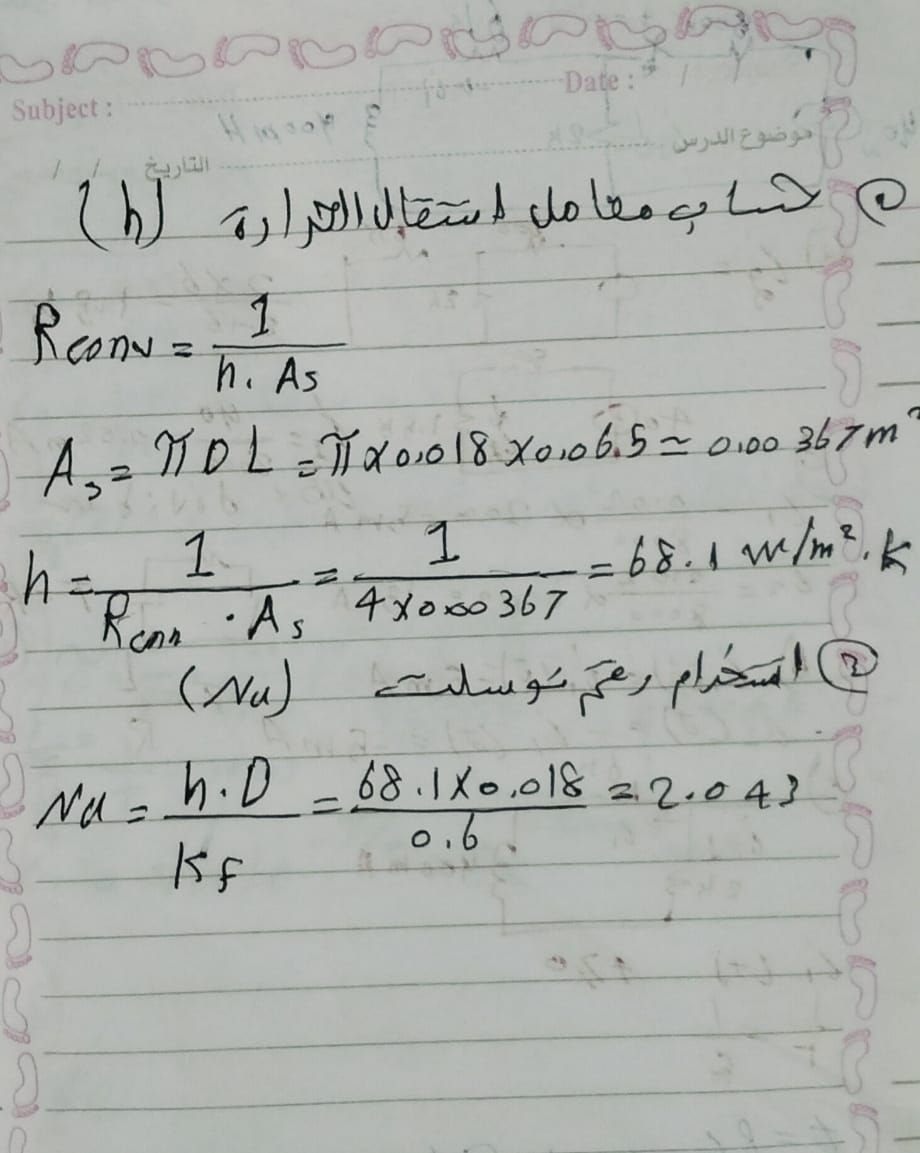 Subject : Date : / /
موضوع الدرس التاريخ / /
① حساب معامل انتقال الحرارة (h)
Rconv = 1 / h. As
As = π D L = π x 0.018 x 0.06.5 ≃ 0.00367 m²
h = 1 / Rconv . As = 1 / 4 x 0.00367 = 68.1 w/m². k
② استخدام رقم نوسلت (Nu)
Nu = h.D / Kf = 68.1 x 0.018 / 0.6 = 2.043